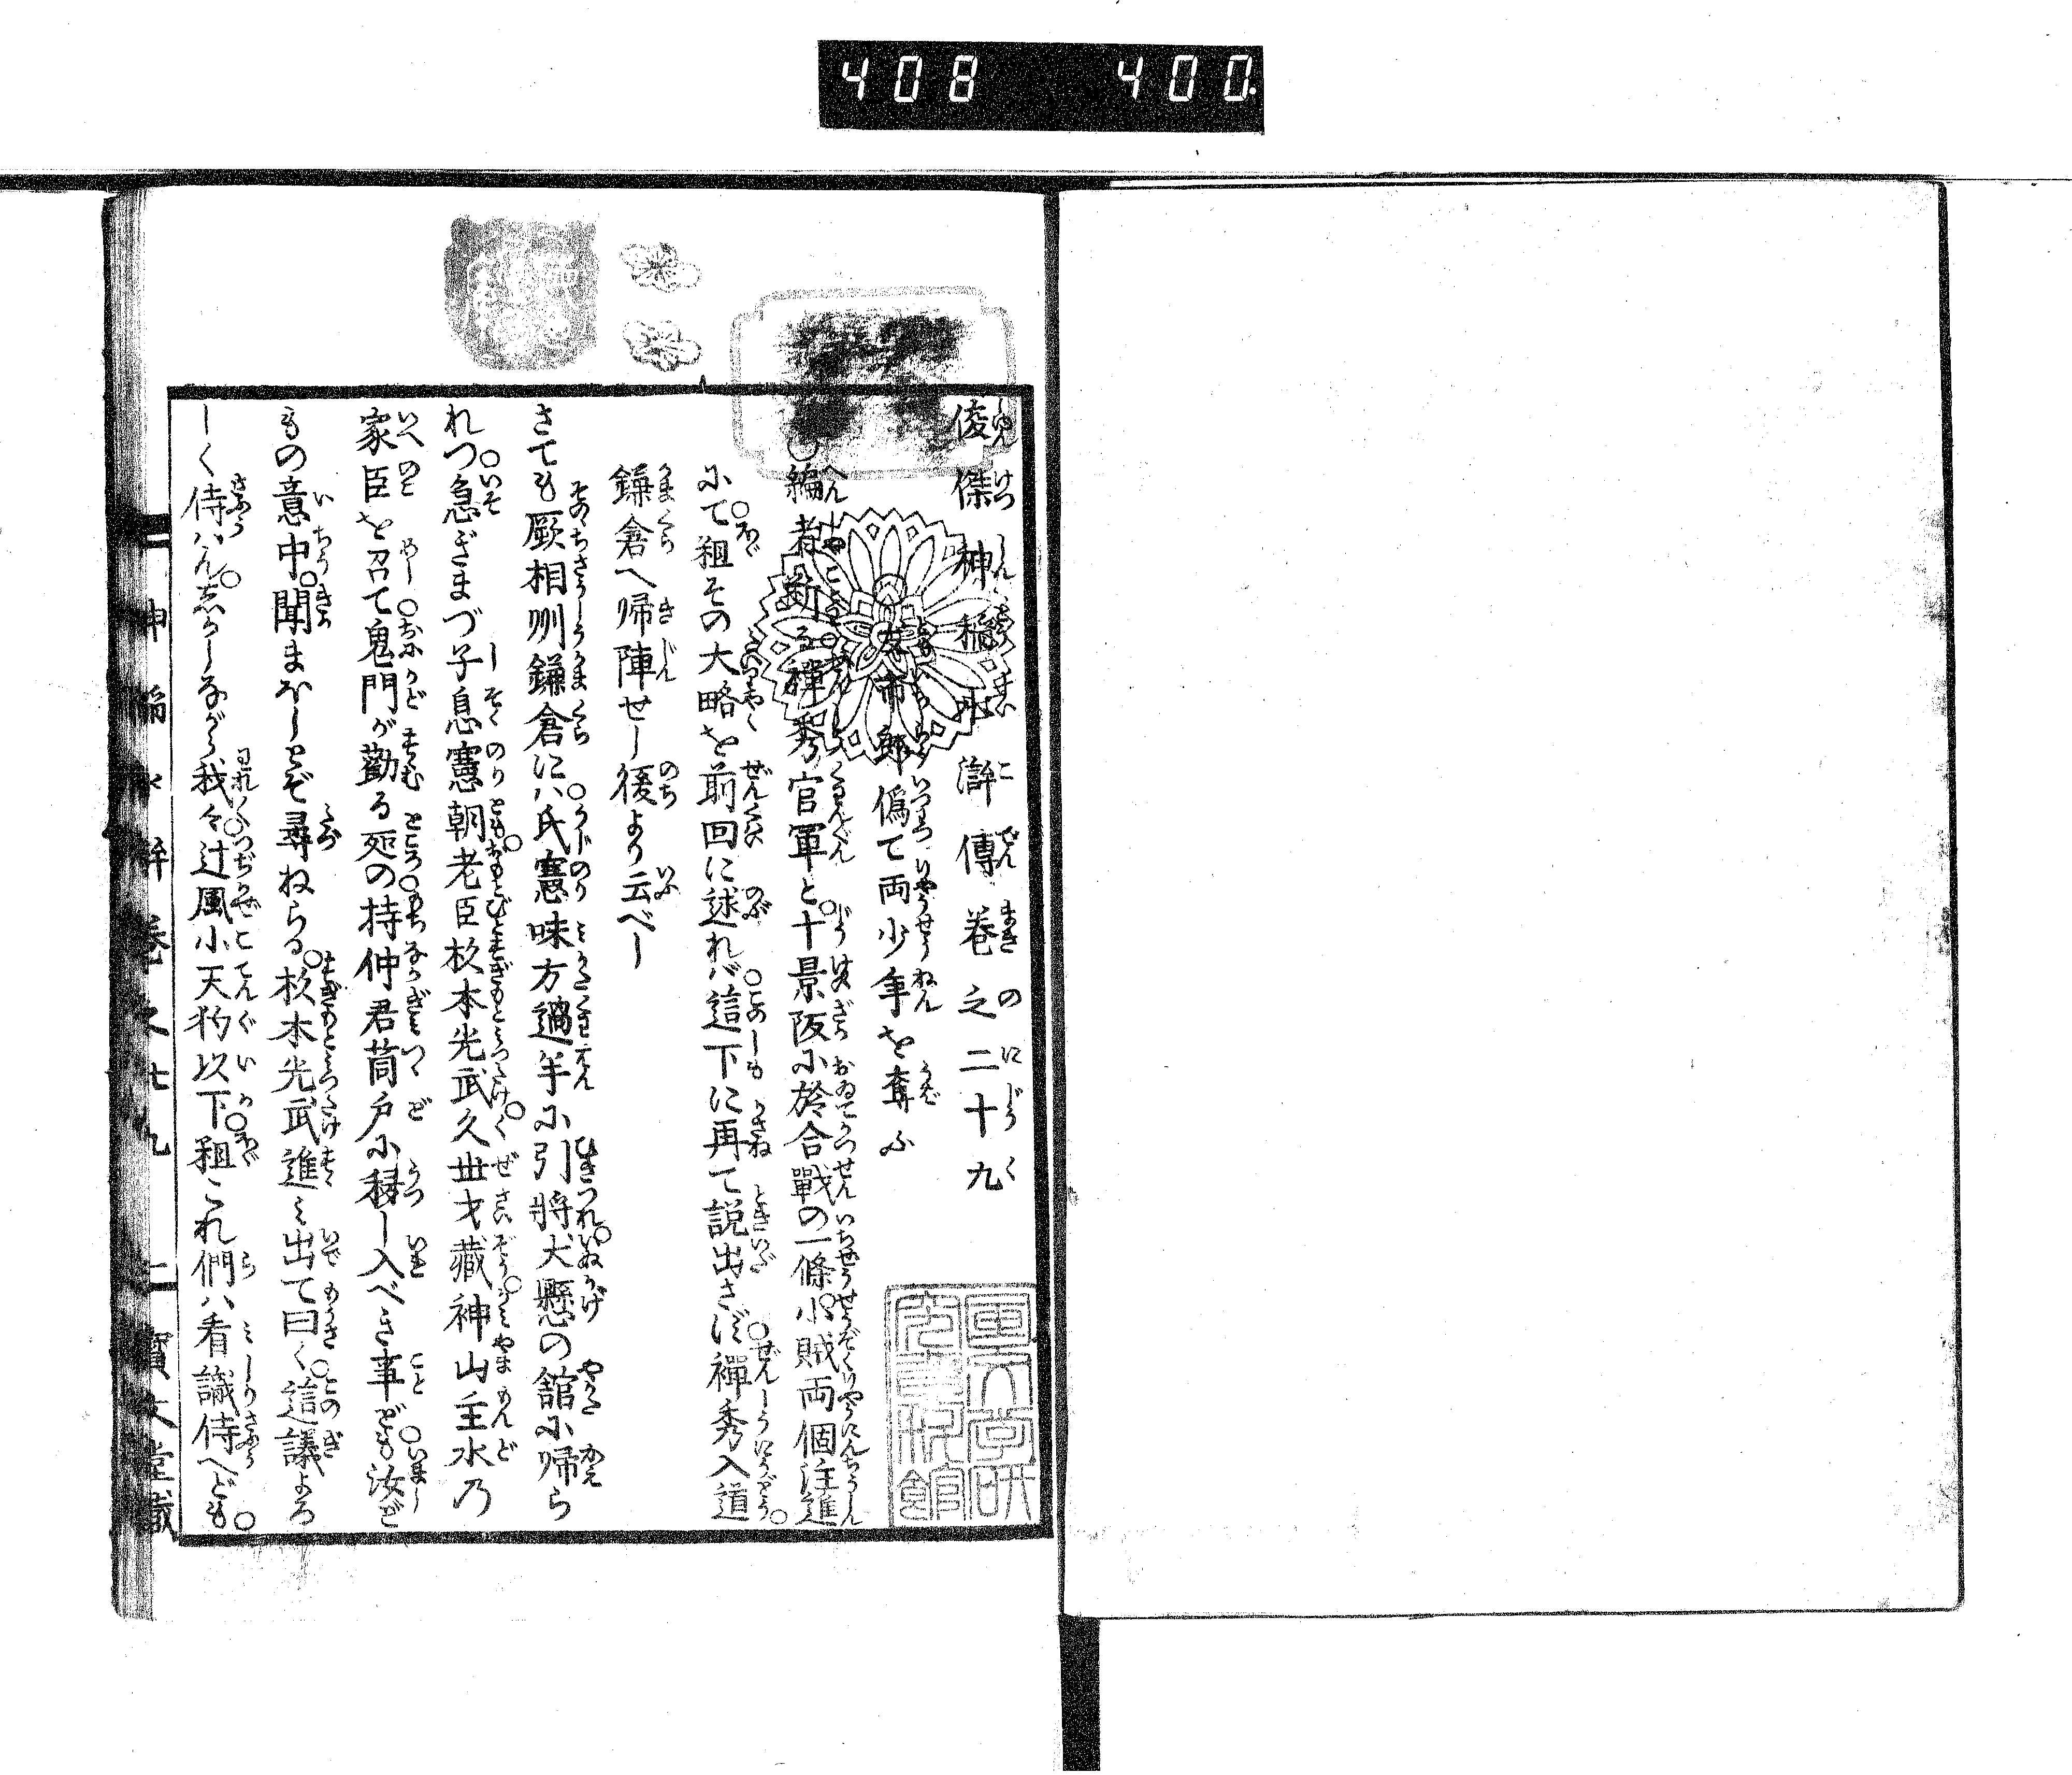 408 400
俊傑神稲水滸傳巻之二十九
友市郎偽て両少年を奪ふ
○編者斷る禅秀官軍と十景阪小於合戰の一條小賊両個注進
小て粗その大略を前回に述れバ這下に再て説出さず禅秀入道
鎌倉へ帰陣せし後より云べし
さても厥相州鎌倉にハ氏憲味方過半小引将犬懸の舘小帰ら
れつ急ぎまづ子息憲朝老臣杉本光武久世才藏神山主水乃
家臣を召て鬼門が勸る処の持仲君筒戸小移し入べき事ども汝ぎ
もの意中聞まほしとぞ尋ねらる杉本光武進ミ出て曰く這議よろ
しく侍ハん志かしながら我々辻風小天狗以下粗これ們ハ看識侍へども
神稲水滸巻之廿九 一 寳文堂藏